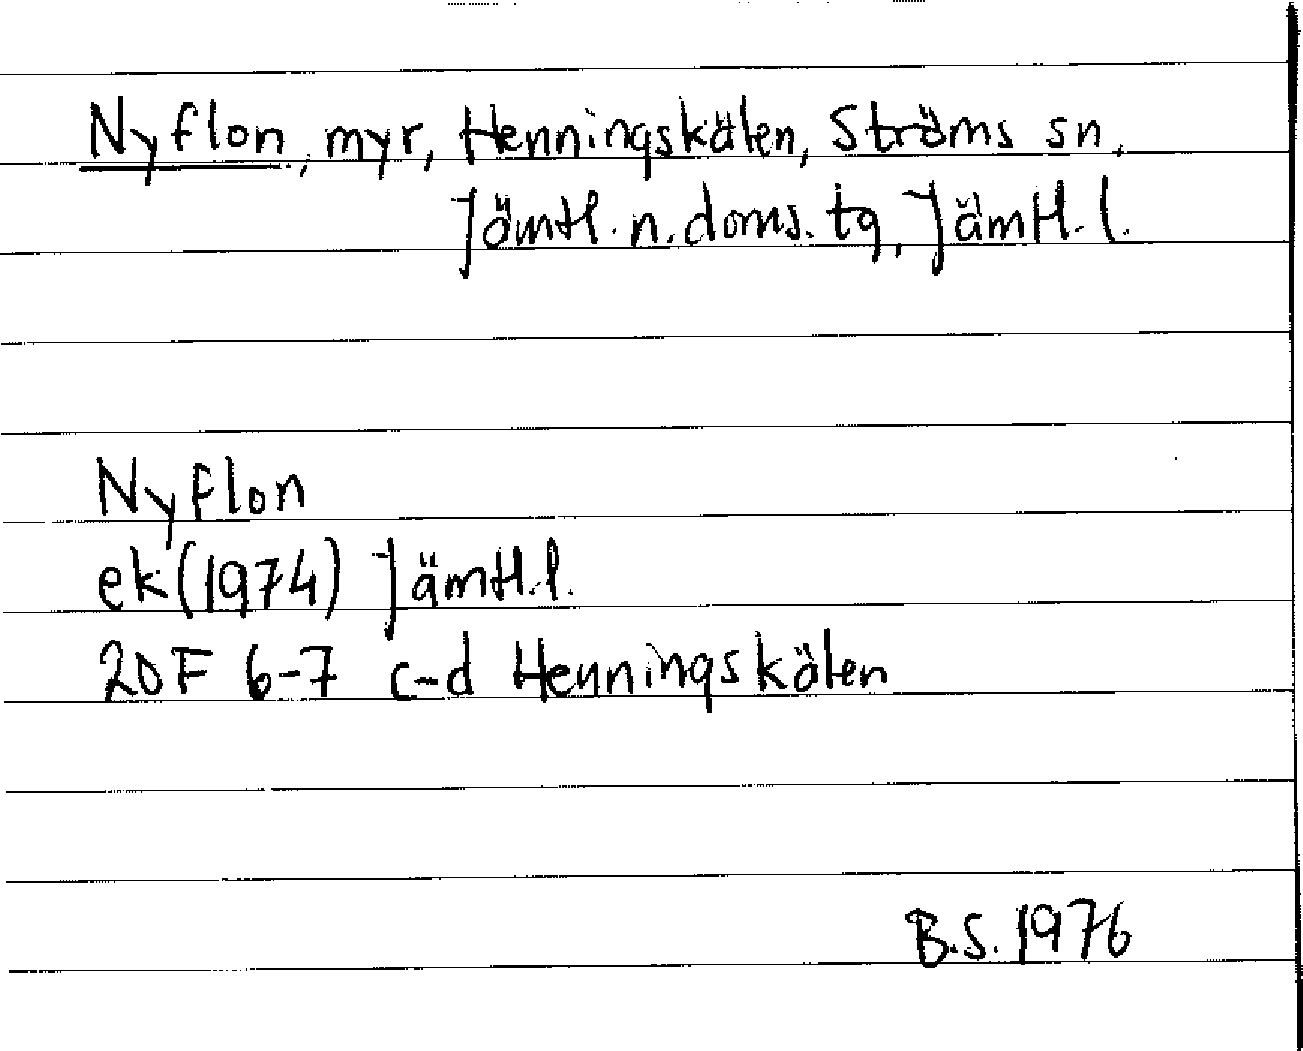 Nyflon, myr, Henningskälen, Ströms sn,
Jämtl. n. doms. tg, Jämtl. l.
Nyflon
ek (1974) Jämtl. l.
20F 6-7 c-d Henningskälen
B.S. 1976